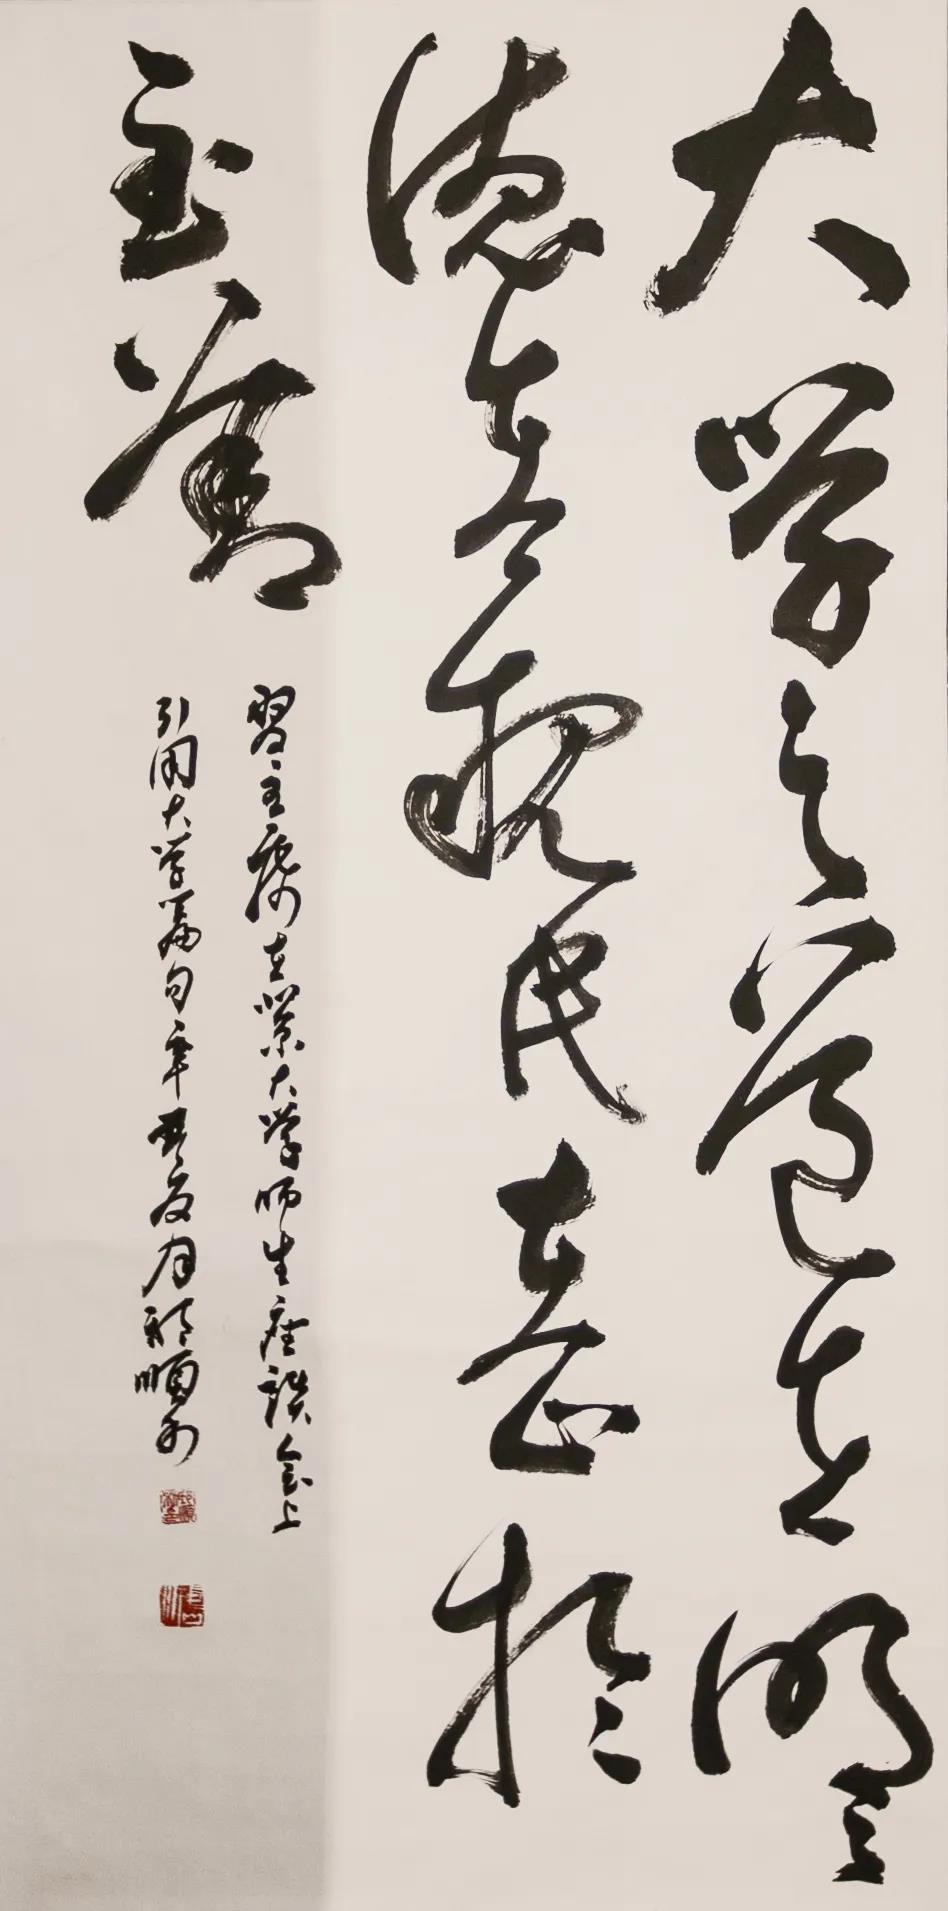 大学之道在明々
德在親民在止於
至善
習主席在北京大学师生座談会上
引用大学篇句辛丑夏月